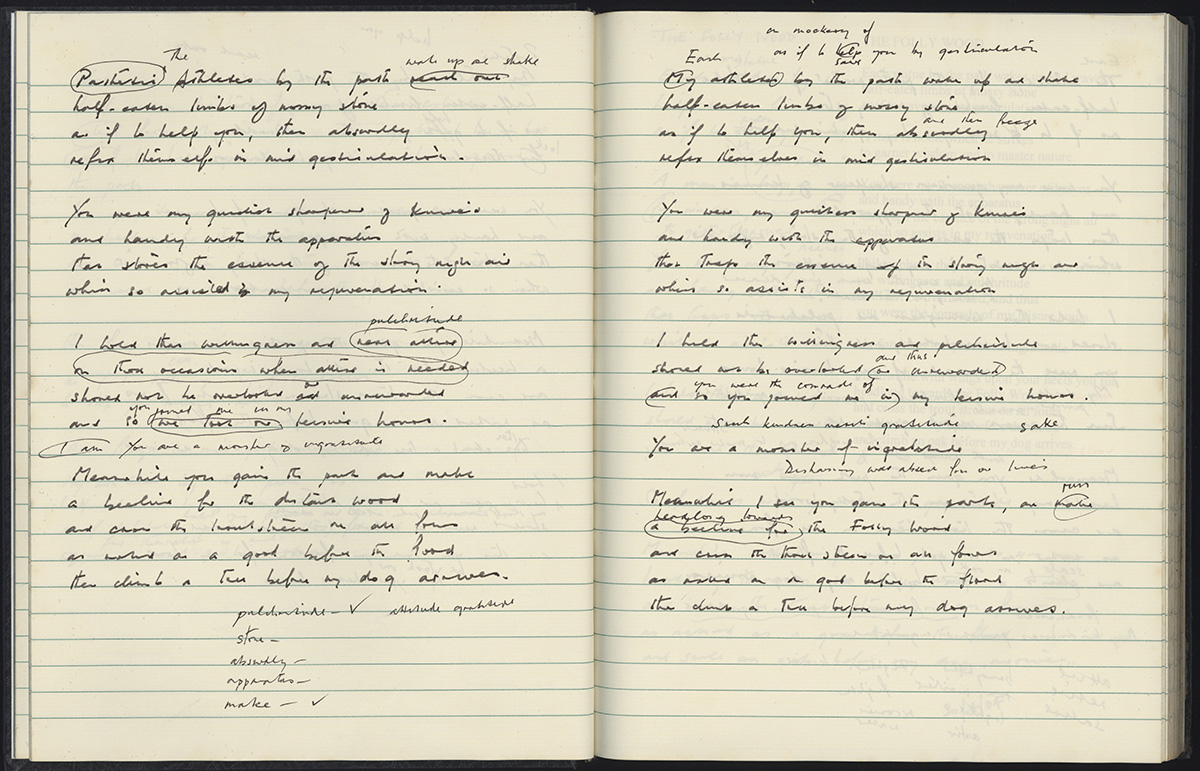 The wake up and shake
Athletes by the path reach out
half-eaten limbs of mossy stone
as if to help you, then absurdly
refix themselves in mid gesticulation.
You were my quickest sharpener of knives
and handy with the apparatus
that stores the essence of the strong night air
which so assisted in my rejuvenation.
pulchritude
I hold that willingness and near attire
on those occasions when attire is needed
should not be overlooked and unrewarded
you joined me in my
and so we took our leisure hours.
I am You are a monster of ingratitude
Meanwhile you gain the park and make
a beeline for the distant wood
and cross the trout stream on all fours
as naked as a god before the flood
then climb a tree before my dog arrives.
pulchritude – ✓ attitude gratitude
stone –
absurdly –
apparatus –
make – ✓
or mockery of
Each as if to help you by gesticulation
save
My athletes by the path wake up and shake
half-eaten limbs of mossy stone
and then freeze
as if to help you, then absurdly
refix themselves in mid gesticulation
You were my quickest sharpener of knives
and handy with the apparatus
that traps the essence of the strong night air
which so assists in my rejuvenation
I hold that willingness and pulchritude
and thus
should not be overlooked or unrewarded
you were the comrade of
and so you joined me in my leisure hours.
Such kindness merits gratitude sake
You are a monster of ingratitude
was absent from our lives
Meanwhile I see you gain the park, and make
run
headlong towards
a beeline for the Folly wood
and cross the trout stream on all fours
as naked as a god before the flood
then climb a tree before my dog arrives.